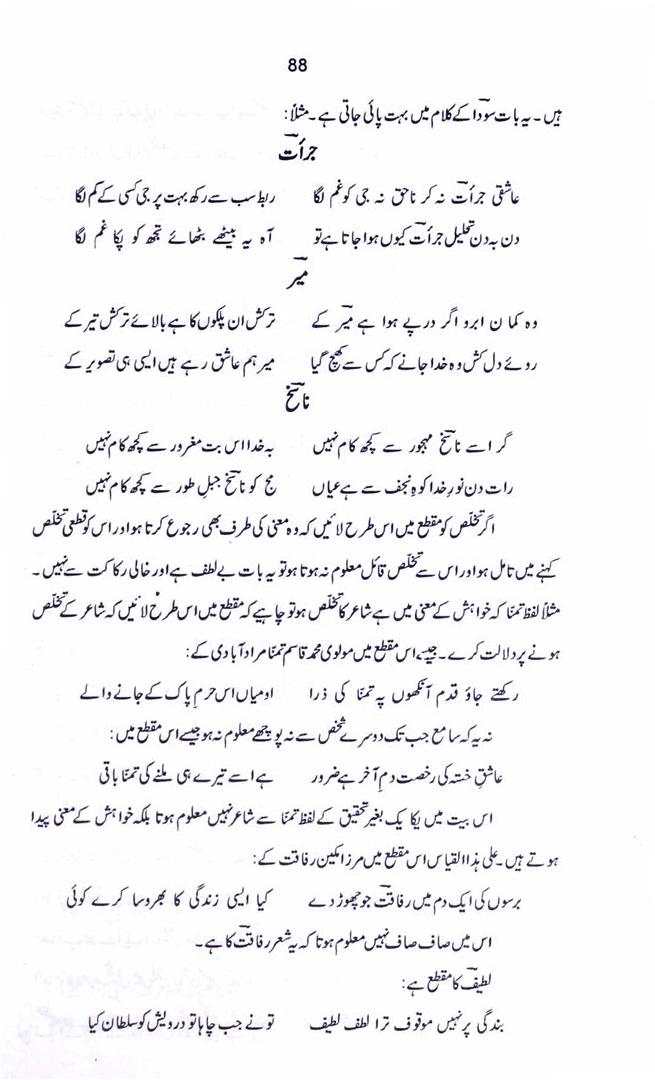 88
ہیں۔ یہ بات سوداؔ کے کلام میں بہت پائی جاتی ہے۔ مثلاً:
جرأتؔ
عاشقی جرأتؔ نہ کر ناحق نہ جی کو غم لگا ربط سب سے رکھ بہت پر جی کسی کے کم لگا
دن بہ دن تحلیل جرأتؔ کیوں ہوا جاتا ہے تو آہ یہ بیٹھے بٹھائے تجھ کو پکا غم لگا
میرؔ
وہ کمان ابرو اگر درپے ہوا ہے میرؔ کے ترکش ان پلکوں کا ہے بالائے ترکش تیر کے
روئے دل کش وہ خدا جانے کہ کس سے کھچ گیا میر ہم عاشق رہے ہیں ایسی ہی تصویر کے
ناسخؔ
گر اسے ناسخؔ مہجور سے کچھ کام نہیں بہ خدا اس بت مغرور سے کچھ کام نہیں
رات دن نورِ خدا کوہِ نجف سے ہے عیاں مج کو ناسخؔ جبلِ طور سے کچھ کام نہیں
اگر تخلّص کو مقطع میں اس طرح لائیں کہ وہ معنی کی طرف بھی رجوع کرتا ہو اور اس کو قطعی تخلّص
کہنے میں تامل ہو اور اس سے تخلّص قائل معلوم نہ ہوتا ہو تو یہ بات بے لطف ہے اور خالی رکاکت سے نہیں۔
مثلاً لفظ تمنّا کہ خواہش کے معنی میں ہے شاعر کا تخلّص ہو تو چاہیے کہ مقطع میں اس طرح لائیں کہ شاعر کے تخلّص
ہونے پر دلالت کرے۔ جیسے اس مقطع میں مولوی محمد قاسم تمنّا مرادآبادی کے:
رکھتے جاؤ قدم آنکھوں پہ تمنّا کی ذرا او میاں اس حرمِ پاک کے جانے والے
نہ یہ کہ سامع جب تک دوسرے شخص سے نہ پوچھے معلوم نہ ہو جیسے اس مقطع میں:
عاشقِ خستہ کی رخصت دمِ آخر ہے ضرور ہے اسے تیرے ہی ملنے کی تمنّا باقی
اس بیت میں یکا یک بغیر تحقیق کے لفظ تمنّا سے شاعر نہیں معلوم ہوتا بلکہ خواہش کے معنی پیدا
ہوتے ہیں۔ علی ہذا القیاس اس مقطع میں مرزا مکین رفاقت کے:
برسوں کی ایک دم میں رفاقتؔ جو چھوڑ دے کیا ایسی زندگی کا بھروسا کرے کوئی
اس میں صاف صاف نہیں معلوم ہوتا کہ یہ شعر رفاقتؔ کا ہے۔
لطیفؔ کا مقطع ہے:
بندگی پر نہیں موقوف ترا لطف لطیف تو نے جب چاہا تو درویش کو سلطان کیا